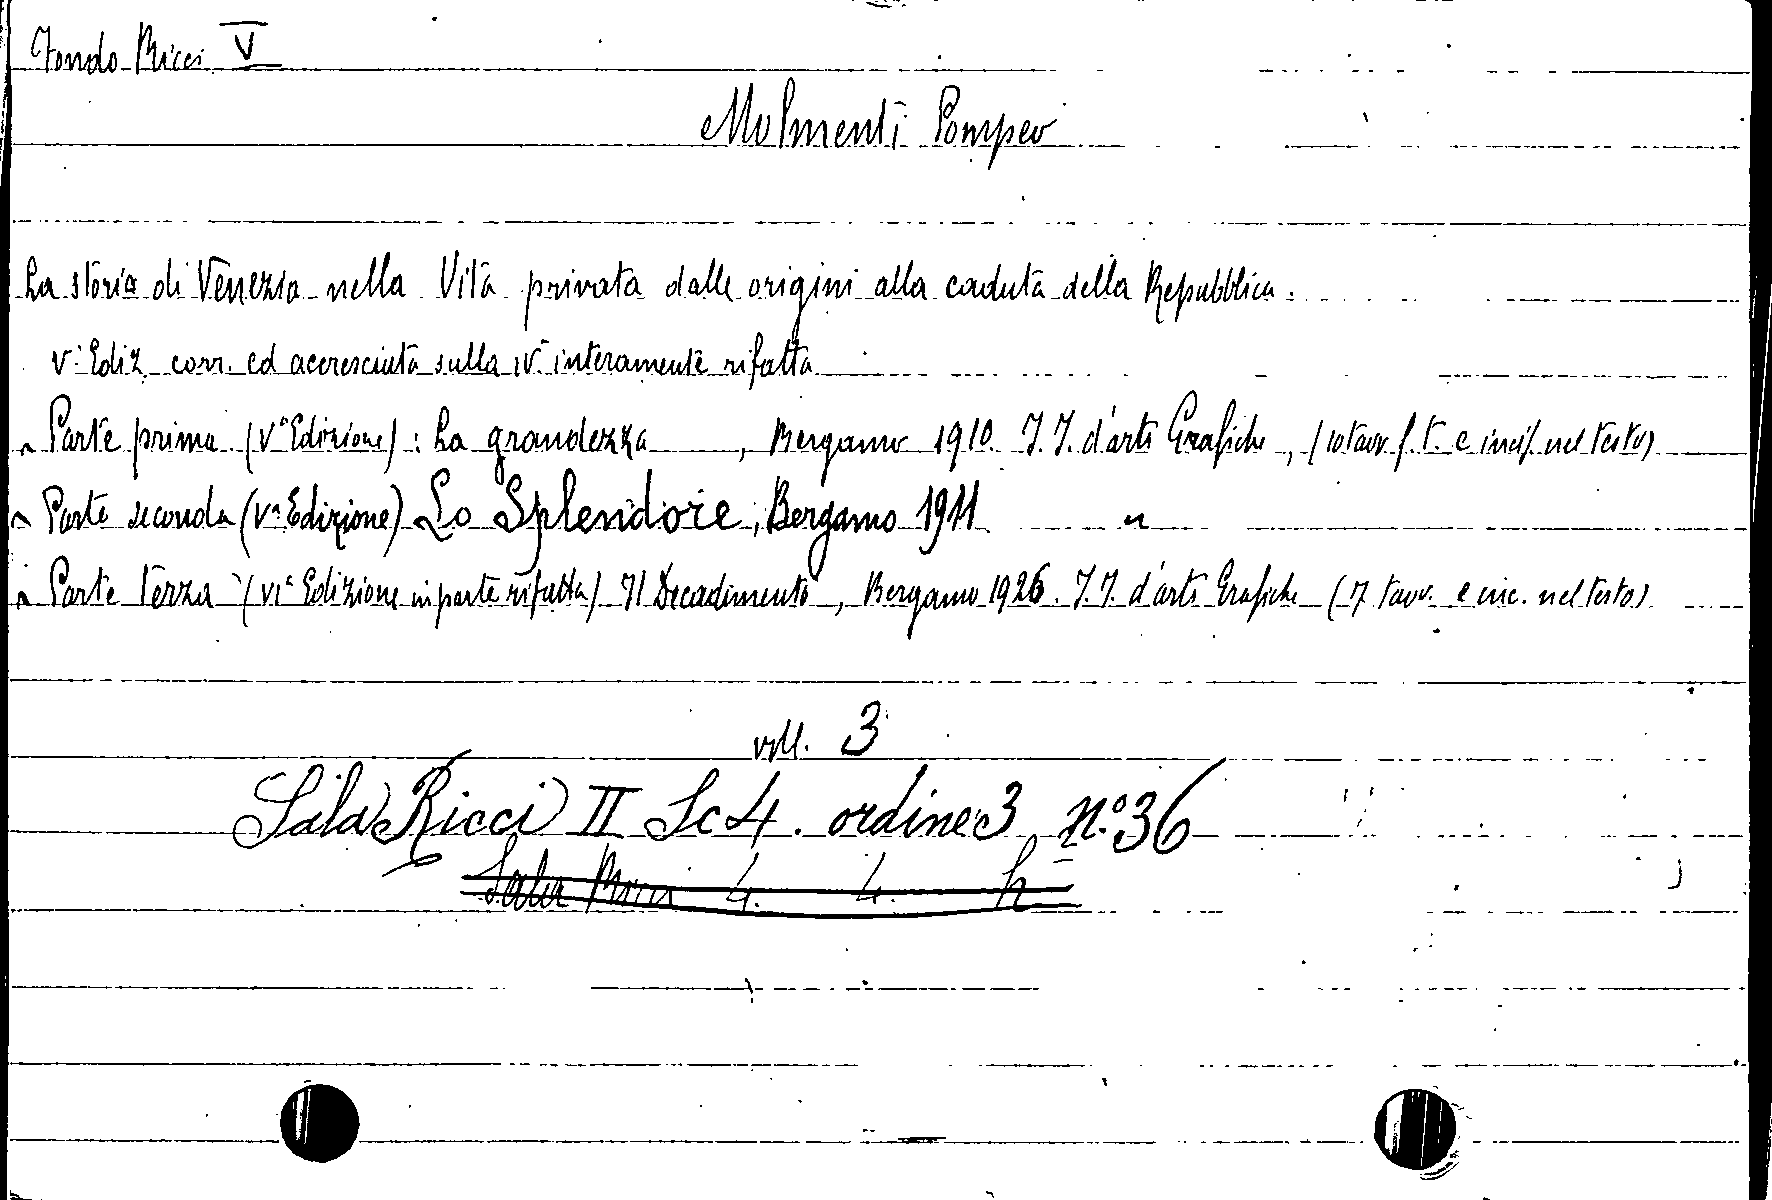 Fondo Ricci V
Molmenti Pompeo
La storia di Venezia nella Vita privata dalle origini alla caduta della Repubblica.
Vª Ediz. corr. ed accresciuta sulla IVª interamente rifatta
Parte prima (Vª Edizione): La grandezza, Bergamo 1910. I. I. d'arti Grafiche, (10 tavv. f. t. e incis. nel testo)
Parte seconda (Vª Edizione) Lo Splendore, Bergamo 1911 "
Parte terza (VIª Edizione in parte rifatta) Il Decadimento, Bergamo 1926. I. I. d'arti Grafiche (7 tavv. e inc. nel testo)
voll. 3
Sala Ricci II Sc 4. ordine 3 n.º 36
Sala Ricci 4. 4. h